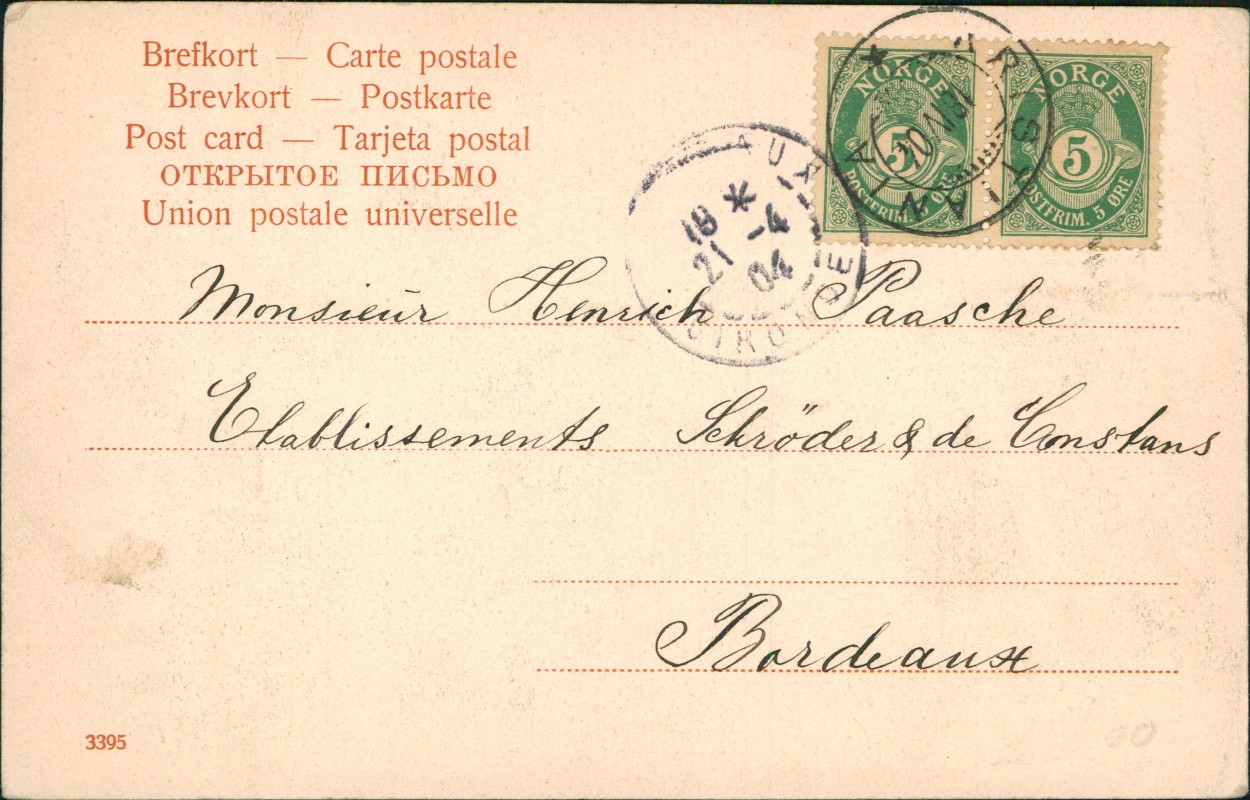 Brefkort — Carte postale
Brevkort — Postkarte
Post card — Tarjeta postal
ОТКРЫТОЕ ПИСЬМО
Union postale universelle
NORGE
5
POSTFRIM. 5 ØRE
NORGE
5
POSTFRIM. 5 ØRE
KRISTIANIA
18
21 -4
04
GIRONDE
Monsieur Henrich Paasche
Etablissements Schröder & de Constans
Bordeaux
3395